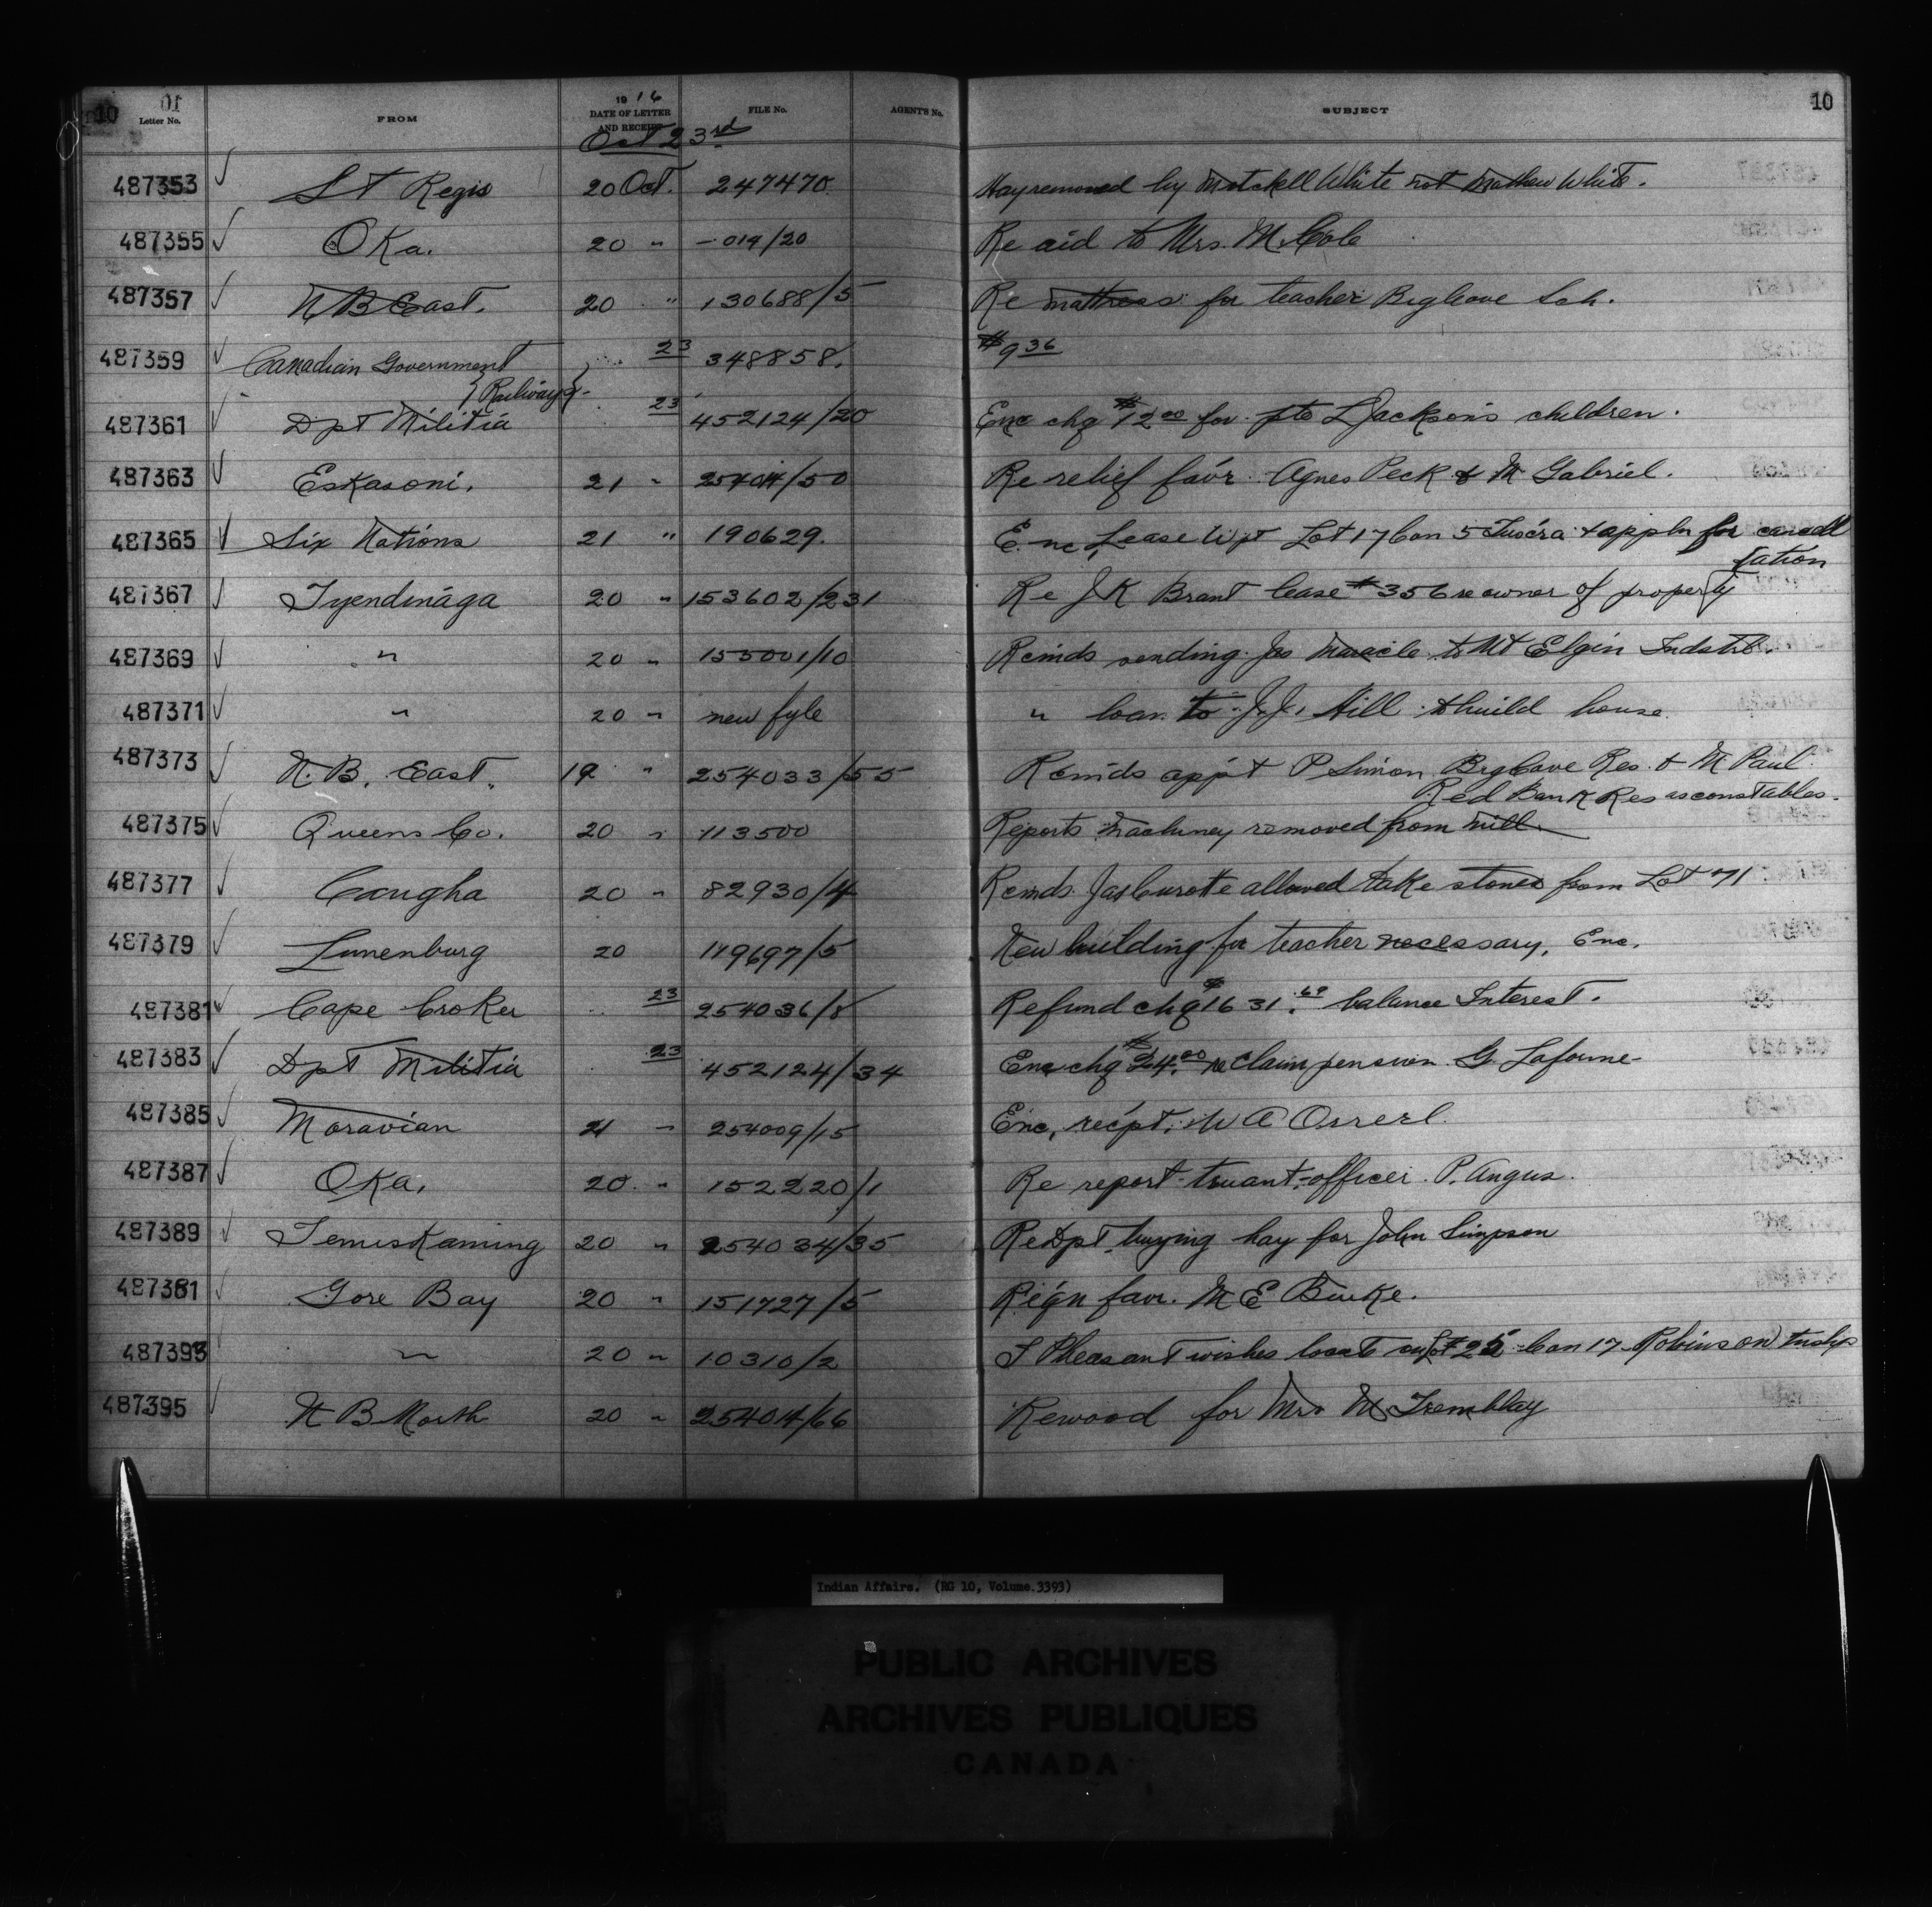 10 10 10
Letter No. FROM 1916 DATE OF LETTER AND RECEIPT FILE No. AGENT'S No. SUBJECT
Oct 23rd
487353 St Regis 20 Oct. 247470 Hay removed by Mitchell White not Mathew White.
487355 Oka. 20 " -019/20 Re aid to Mrs. M. Cole
487357 N B East. 20 " 130688/5 Re mattress for teacher Big Cove Sch.
487359 Canadian Government 23 348858. $9 36
{Railways}
487361 Dpt Militia 23 452124/20 Enc chq $12 00 for pte L Jackson's children.
487363 Eskasoni. 21 " 25404/50 Re relief fav'r Agnes Peck & M Gabriel.
487365 Six Nations 21 " 190629. Enc, Lease Wpt Lot 17 Con 5 Tusc'ra & appln for cancell
lation
487367 Tyendinaga 20 " 153602/231 Re J K Brant lease #356 re owner of property
487369 " 20 " 155001/10 Rcmds sending Jas Maracle to Mt Elgin Indstl.
487371 " 20 " new fyle " loan to J.J. Hill to build house
487373 N. B. East. 19 " 254033/55 Rcmds app't P Simon Big Cove Res. & M Paul
Red Bank Res as constables.
487375 Queens Co. 20 " 113500 Reports machinery removed from mill
487377 Caugha 20 " 82930/4 Rcmds. Jas Curotte allowed take stones from Lot 71
487379 Lunenburg 20 179697/5 New building for teacher necessary, Enc.
487381 Cape Croker 23 254036/8 Refund chq $1631.69 balance Interest.
487383 Dpt Militia 23 452124/34 Enc chq $24.00 re claim pension G.
487385 Moravian 21 " 254009/15 Enc, rec'pt, W A
487387 Oka. 20 " 152220/1 Re report truant-officer P. Angus.
487389 Temiskaming 20 " 254034/35 Re Dpt. buying hay for John Simpson
487391 Gore Bay 20 " 151727/5 Re'q'n favr. M E Burke.
487393 " 20 " 10310/2 J Pheasant wishes locate on Lot 25 Con 17 Robinson tnshp
487395 N B North 20 " 254014/66 Re wood for Mrs M Tremblay
Indian Affairs. (RG 10, Volume.3393)
PUBLIC ARCHIVES
ARCHIVES PUBLIQUES
CANADA